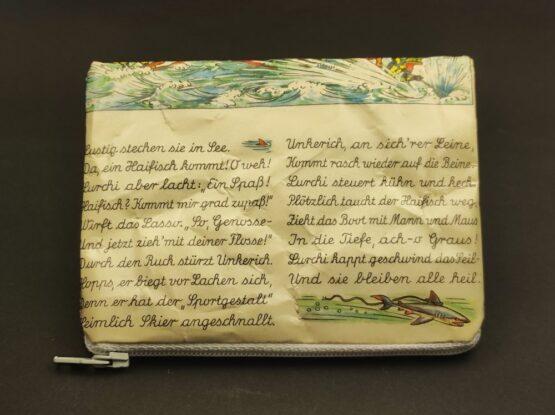 Lustig stechen sie in See.
Da, ein Haifisch kommt! O weh!
Lurchi aber lacht: „Ein Spaß!
Haifisch? Kommt mir grad zupaß!"
Wirft das Lasso. „So, Genosse-
Und jetzt zieh' mit deiner Flosse!"
Durch den Ruck stürzt Unkerich.
Hopps, er biegt vor Lachen sich,
Denn er hat der „Sportgestalt"
Heimlich Skier angeschnallt.
Unkerich, an sich'rer Leine,
Kommt rasch wieder auf die Beine.-
Lurchi steuert kühn und keck.
Plötzlich taucht der Haifisch weg,
Zieht das Boot mit Mann und Maus
In die Tiefe, ach- o Graus!
Lurchi kappt geschwind das Seil-
Und sie bleiben alle heil.